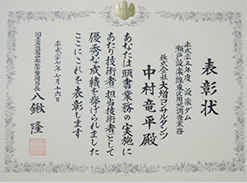 表彰状
平成二十五年度 設楽ダム
瀬戸設楽線
業務
株式会社大増コンサルタンツ
中村竜平殿
あなたは頭書業務の実施に
あたり技術者(担当技術者)として
優秀な成績を挙げられました
ここにこれを表彰します
平成二十六年七月十六日
国土交通省中部地方整備局長 八鍬隆